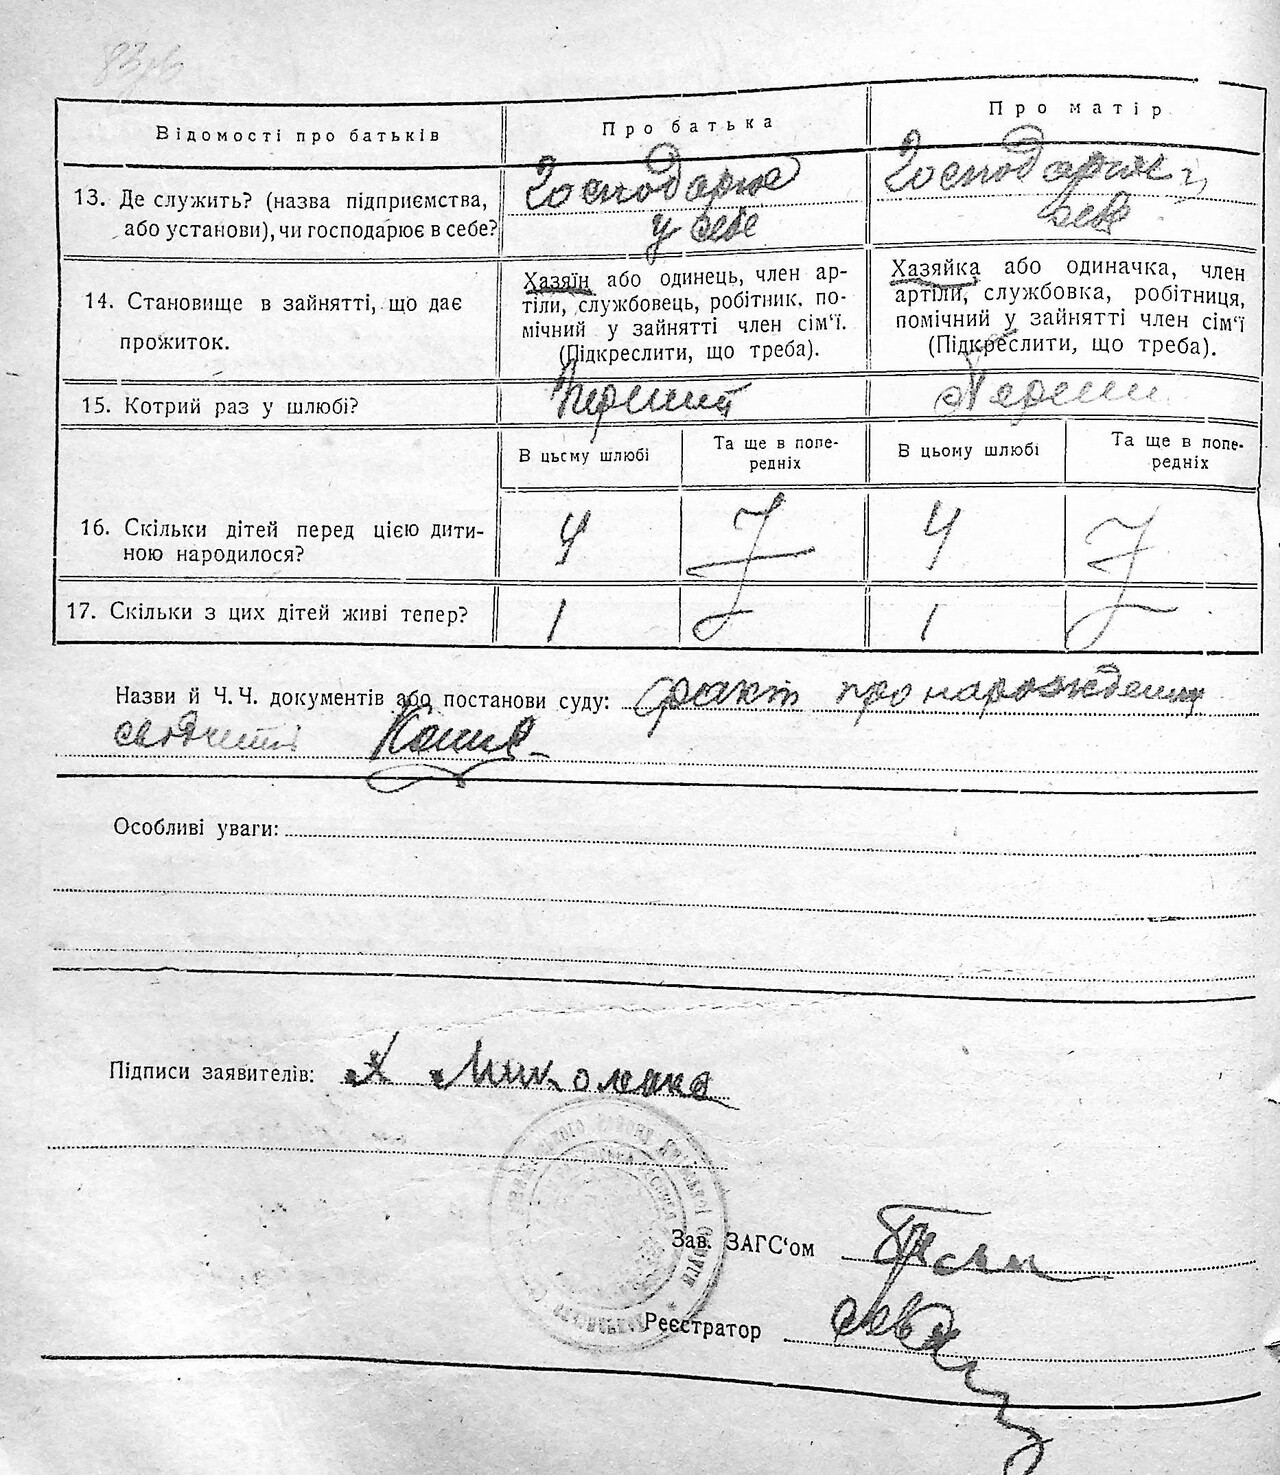 Відомості про батьків
Про батька
Про матір
13. Де служить? (назва підприємства,
або установи), чи господарює в себе?
Господарює
у себе
Господарює у
себе
14. Становище в зайнятті, що дає
прожиток.
Хазяїн або одинець, член ар-
тіли, службовець, робітник, по-
мічний у зайнятті член сім‘ї.
(Підкреслити, що треба).
Хазяйка або одиначка, член
артіли, службовка, робітниця,
помічний у зайнятті член сім‘ї
(Підкреслити, що треба).
15. Котрий раз у шлюбі?
Перший
В цьому шлюбі
Та ще в попе-
редніх
В цьому шлюбі
Та ще в попе-
редніх
16. Скільки дітей перед цією дити-
ною народилося?
4
4
17. Скільки з цих дітей живі тепер?
1
1
Назви й Ч. Ч. документів або постанови суду: факт про нарождения
Особливі уваги:
Підписи заявителів:
Зав. ЗАГС‘ом
Реєстратор